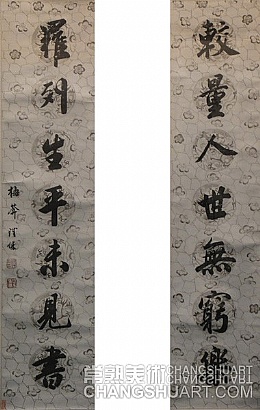 較量人世無窮樂
羅列生平未見書
常熟美術
CHANGSHUART
CHANGSHUART.COM